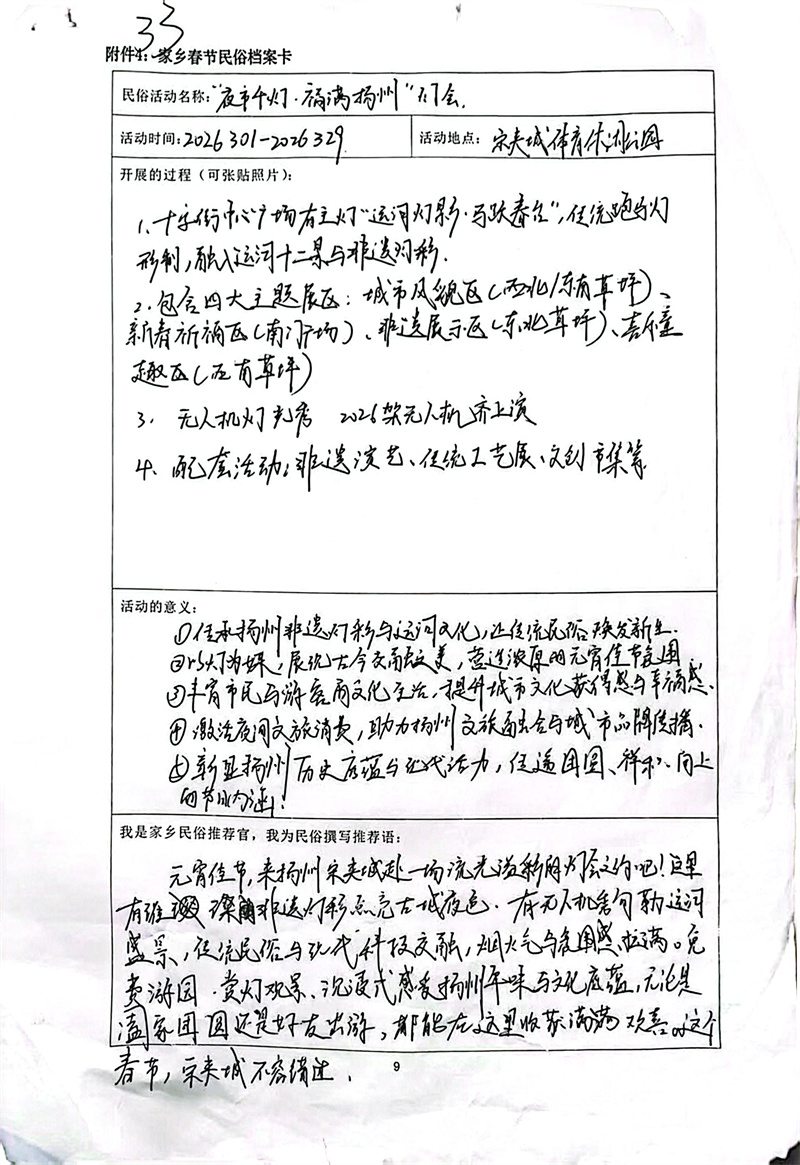 33
附件4：家乡春节民俗档案卡
民俗活动名称："夜市千灯·福满扬州"灯会.
活动时间：2026 301-2026 329 活动地点：宋夹城体育休闲公园
开展的过程（可张贴照片）：
1、十字街中心广场有主灯"运河灯影·马跃春生"，传统跑马灯
形制，融入运河十二景与非遗灯彩.
2.包含四大主题展区：城市风貌区（西北/东南草坪）、
新春祈福区（南门广场）、非遗展示区（东北草坪）、喜乐童
趣区（西南草坪）
3. 无人机灯光秀 2026架无人机齐上演
4. 配套活动：非遗演艺、传统工艺展、文创市集等
活动的意义：
①传承扬州非遗灯彩与运河文化，让传统民俗焕发新生.
②以灯为媒，展现古今交融之美，营造浓厚的元宵佳节氛围
③丰富市民与游客的文化生活，提升城市文化获得感与幸福感.
④激活夜间文旅消费，助力扬州文旅融合与城市品牌传播.
⑤彰显扬州历史底蕴与现代活力，传递团圆、祥和、向上
的节日内涵！
我是家乡民俗推荐官，我为民俗撰写推荐语：
元宵佳节，来扬州宋夹城赴一场流光溢彩的灯会之约吧！这里
有璀璨非遗灯彩点亮古城夜色．有无人机秀勾勒运河
盛景，传统民俗与现代科技交融，烟火气与氛围感拉满。免
费游园．赏灯观景、沉浸式感受扬州年味与文化底蕴，无论是
阖家团圆还是好友出游，都能在这里收获满满欢喜。这个
春节，宋夹城不容错过．
9